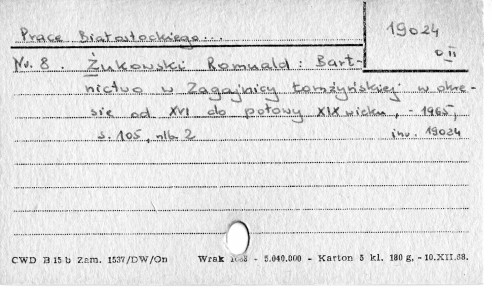 19024
D II
Prace Białostockiego...
Nr. 8. Żukowski Romuald: Bart-
nictwo w Zagajnicy Łomżyńskiej w okre-
sie od XVI do połowy XIX wieku, - 1965,
s. 105, nlb. 2 inv. 19024
CWD B 15 b Zam. 1537/DW/On Wrak - 5.040.000 - Karton 5 kl. 180 g. - 10.XII.68.